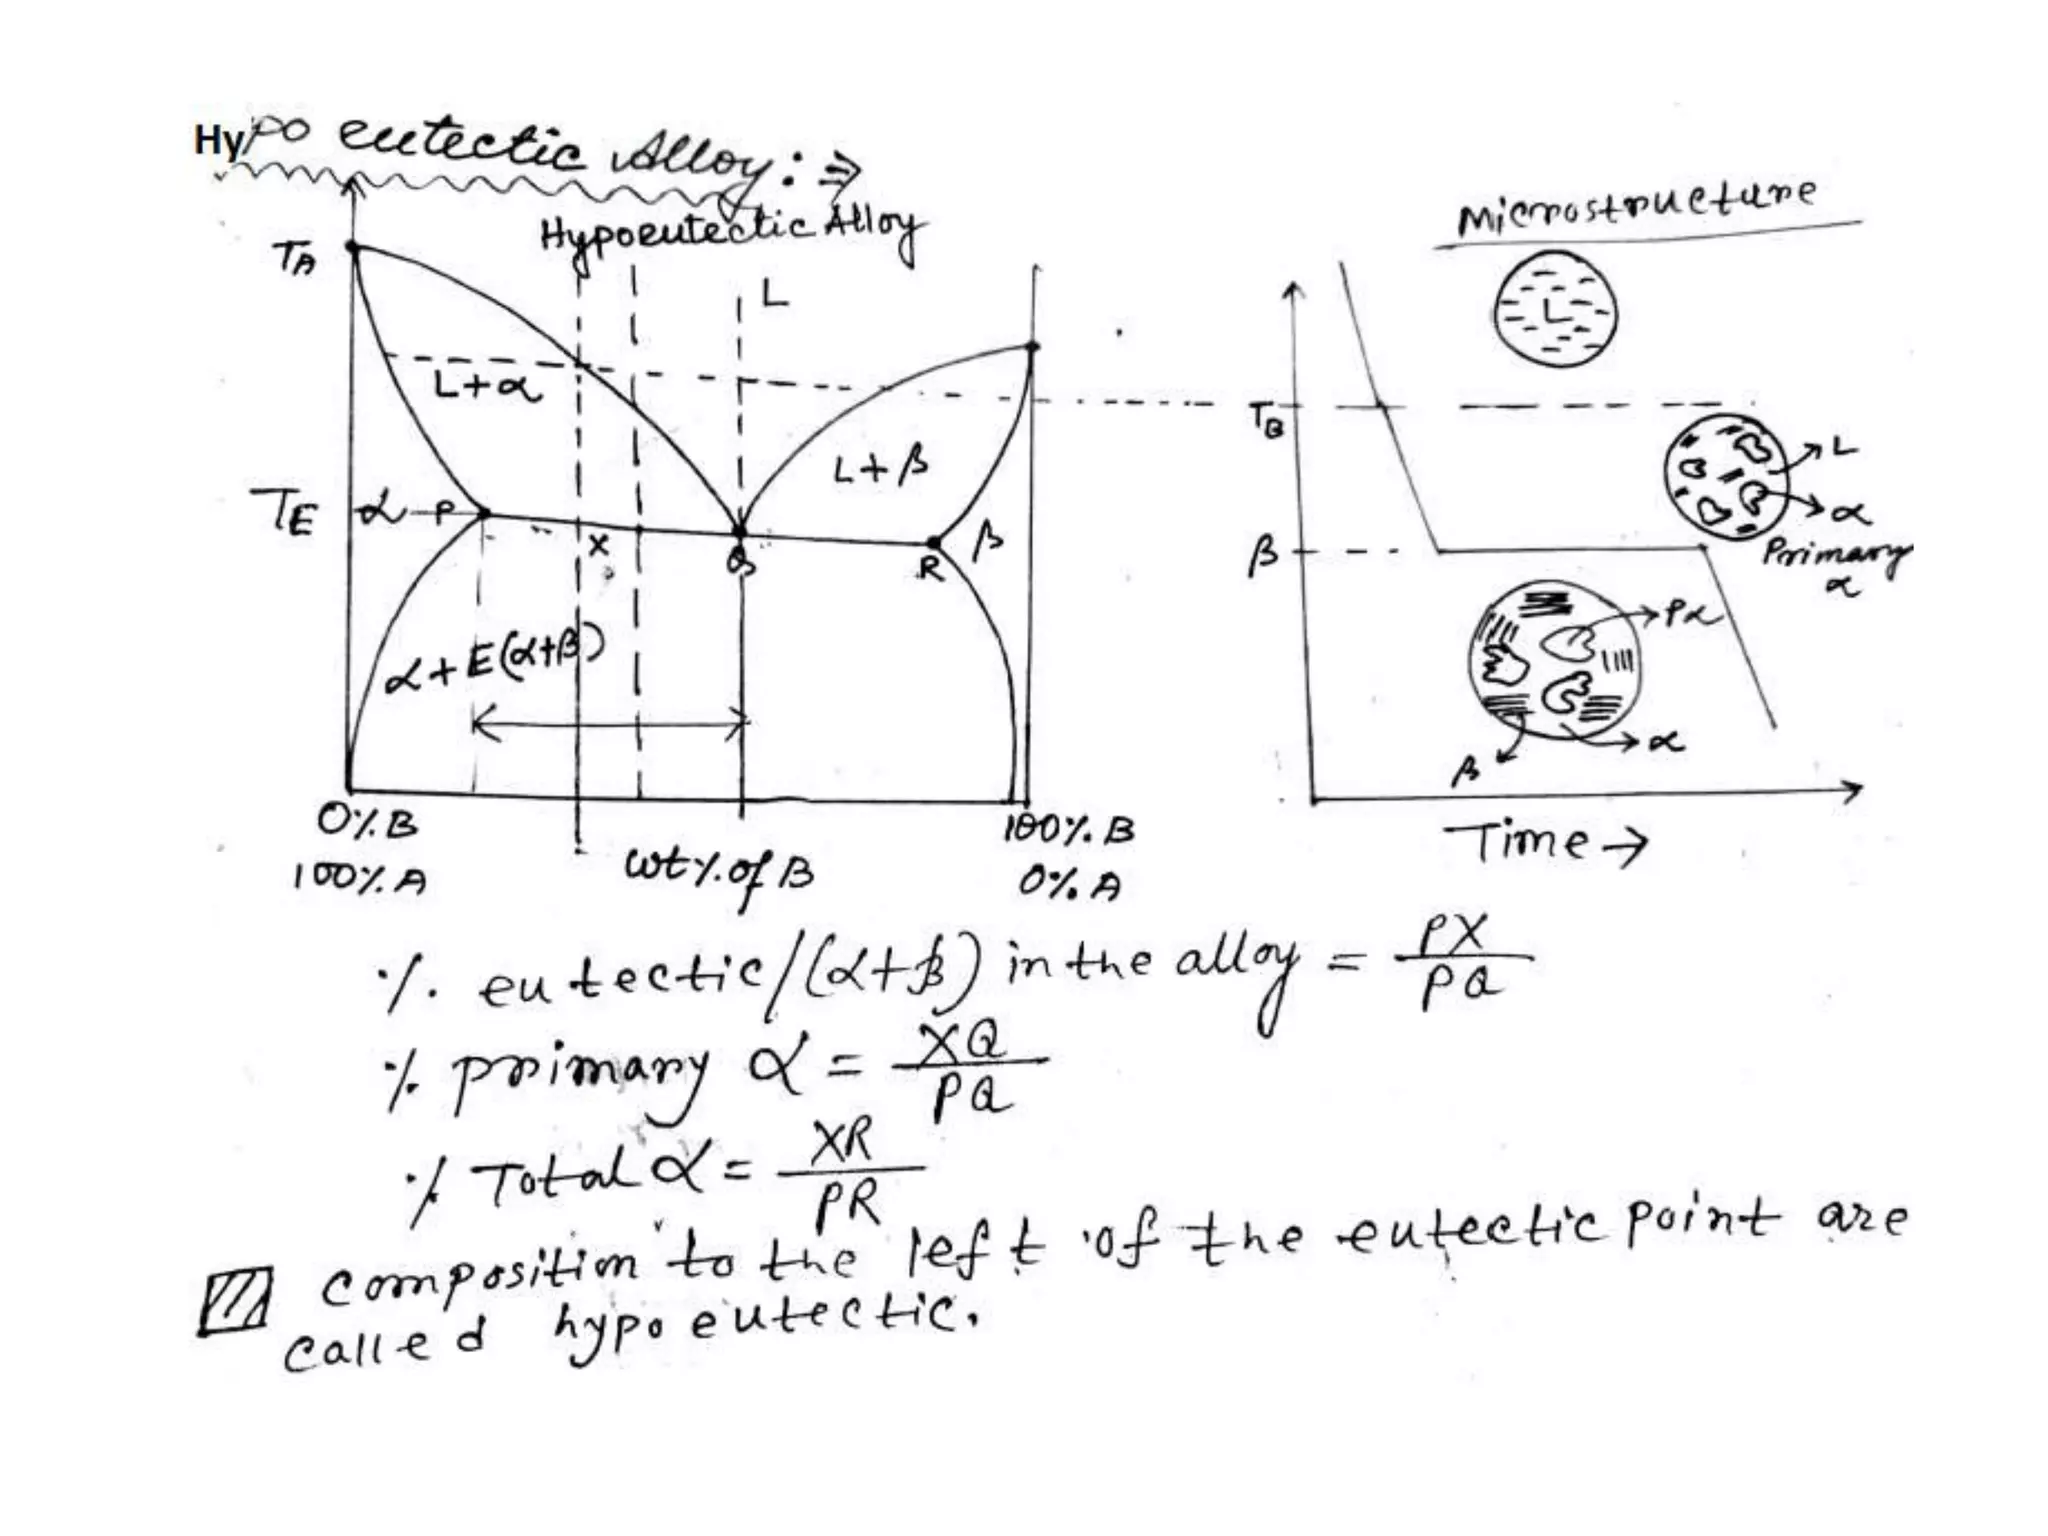 Hypo eutectic Alloy: ⇒
Hypoeutectic Alloy
Microstructure
T_A
L
L
L+α
T_B
L+β
L
α
T_E
α
P
X
Q
R
β
β
Primary
α
α+E(α+β)
Pα
α
β
0% B
100% A
wt% of B
100% B
0% A
Time →
% eutectic/(α+β) in the alloy = PX/PQ
% primary α = XQ/PQ
% Total α = XR/PR
composition to the left of the eutectic point are
called hypo eutectic.